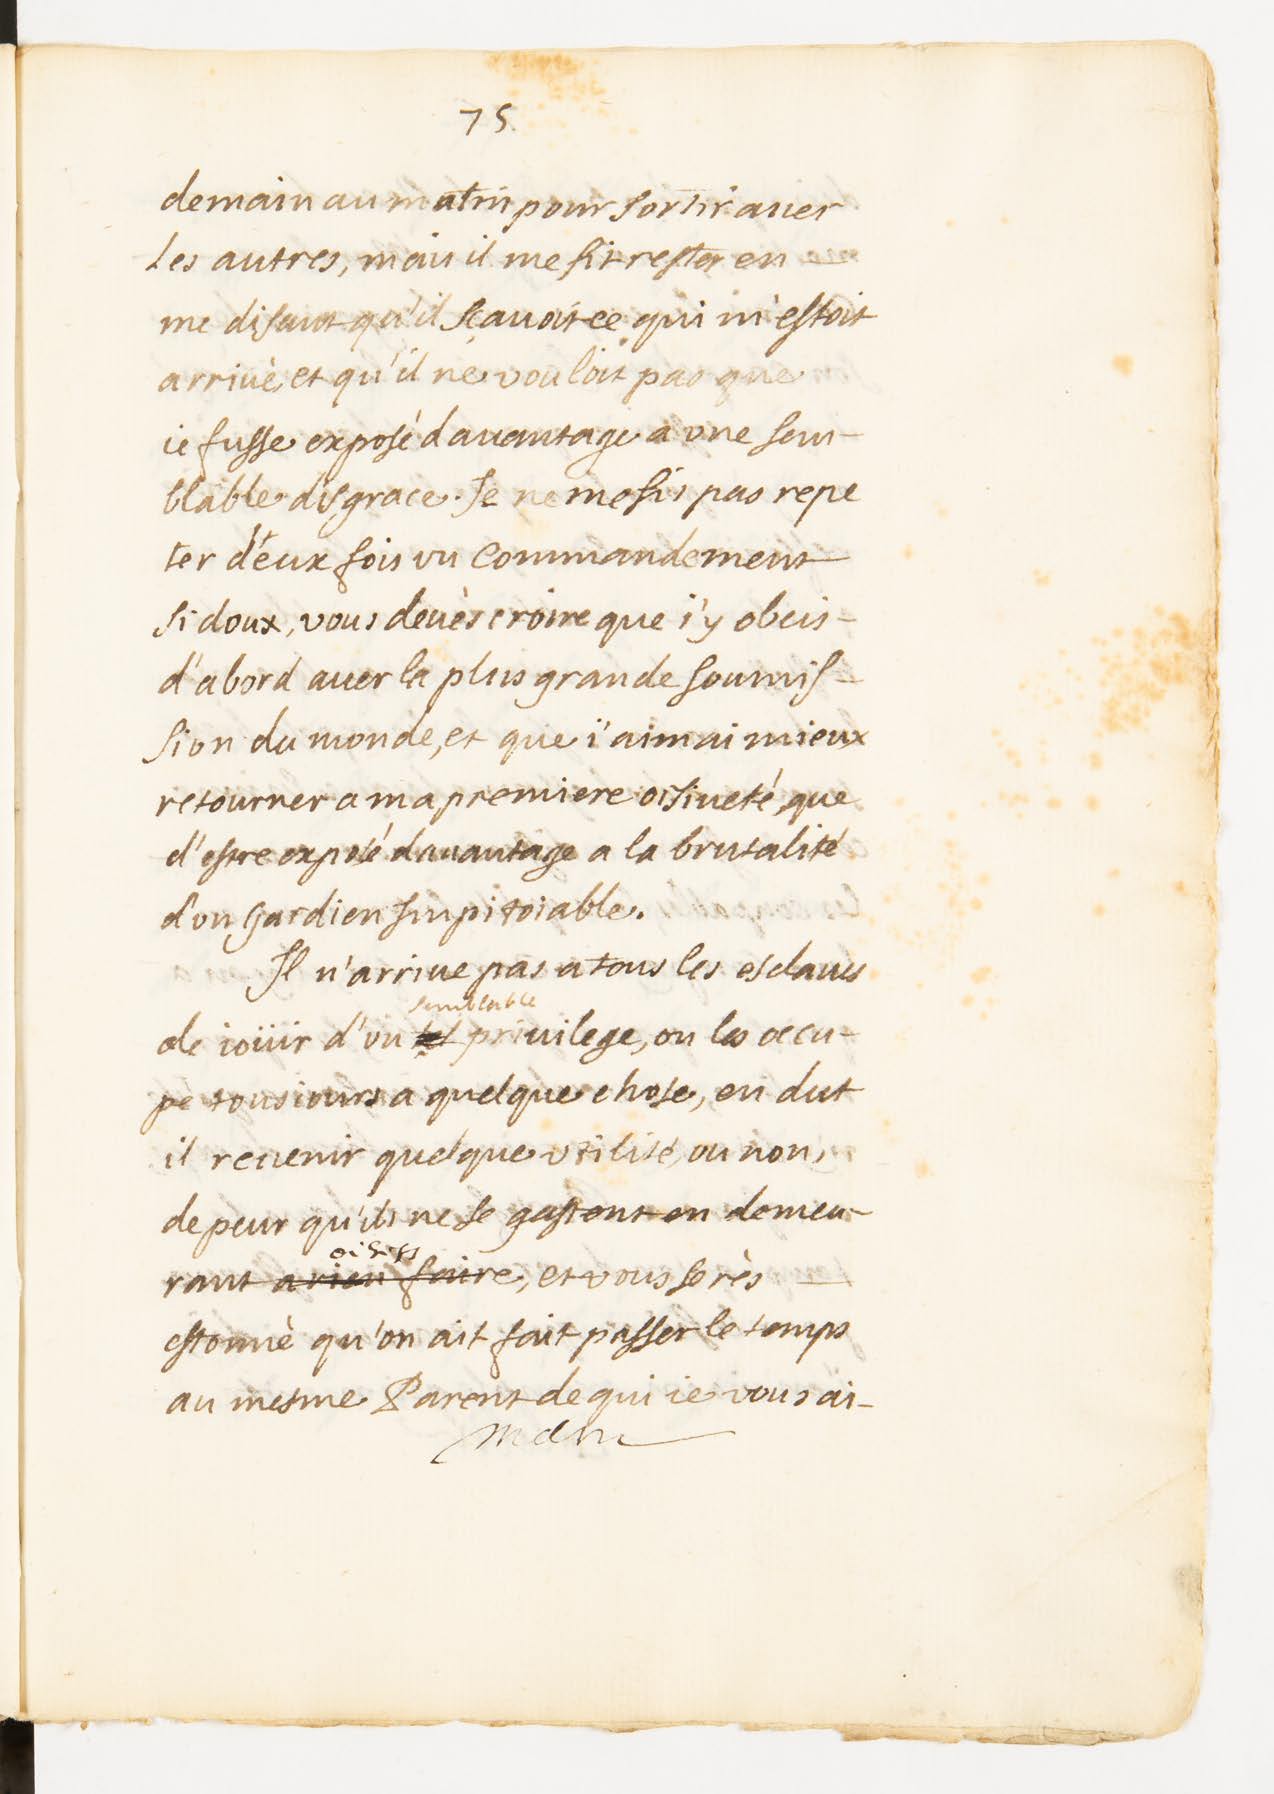 75
demain au matin pour sortir auec
les autres, mais il me fit rester en
me disant qu'il sçauoit ce qui m'estoit
arriué, et qu'il ne vouloit pas que
ie fusse exposé dauantage a vne sem-
blable disgrace. Je ne me fis pas repe
ter deux fois vn commandement
si doux, vous deuès croire que i'y obeis
d'abord auec la plus grande soumis-
sion du monde, et que i'aimai mieux
retourner a ma premiere oisiueté, que
d'estre exposé dauantage a la brutalité
d'vn gardien impitoiable.
Il n'arriue pas a tous les esclaues
semblable
de ioüir d'vn tel priuilege, on les occu-
pe tousiours a quelque chose, en dut
il reuenir quelque vtilité, ou non,
de peur qu'ils ne se gastent en demeu-
oisifs
rant a rien faire, et vous serès
estonné qu'on ait fait passer le temps
au mesme Parent de qui ie vous ai